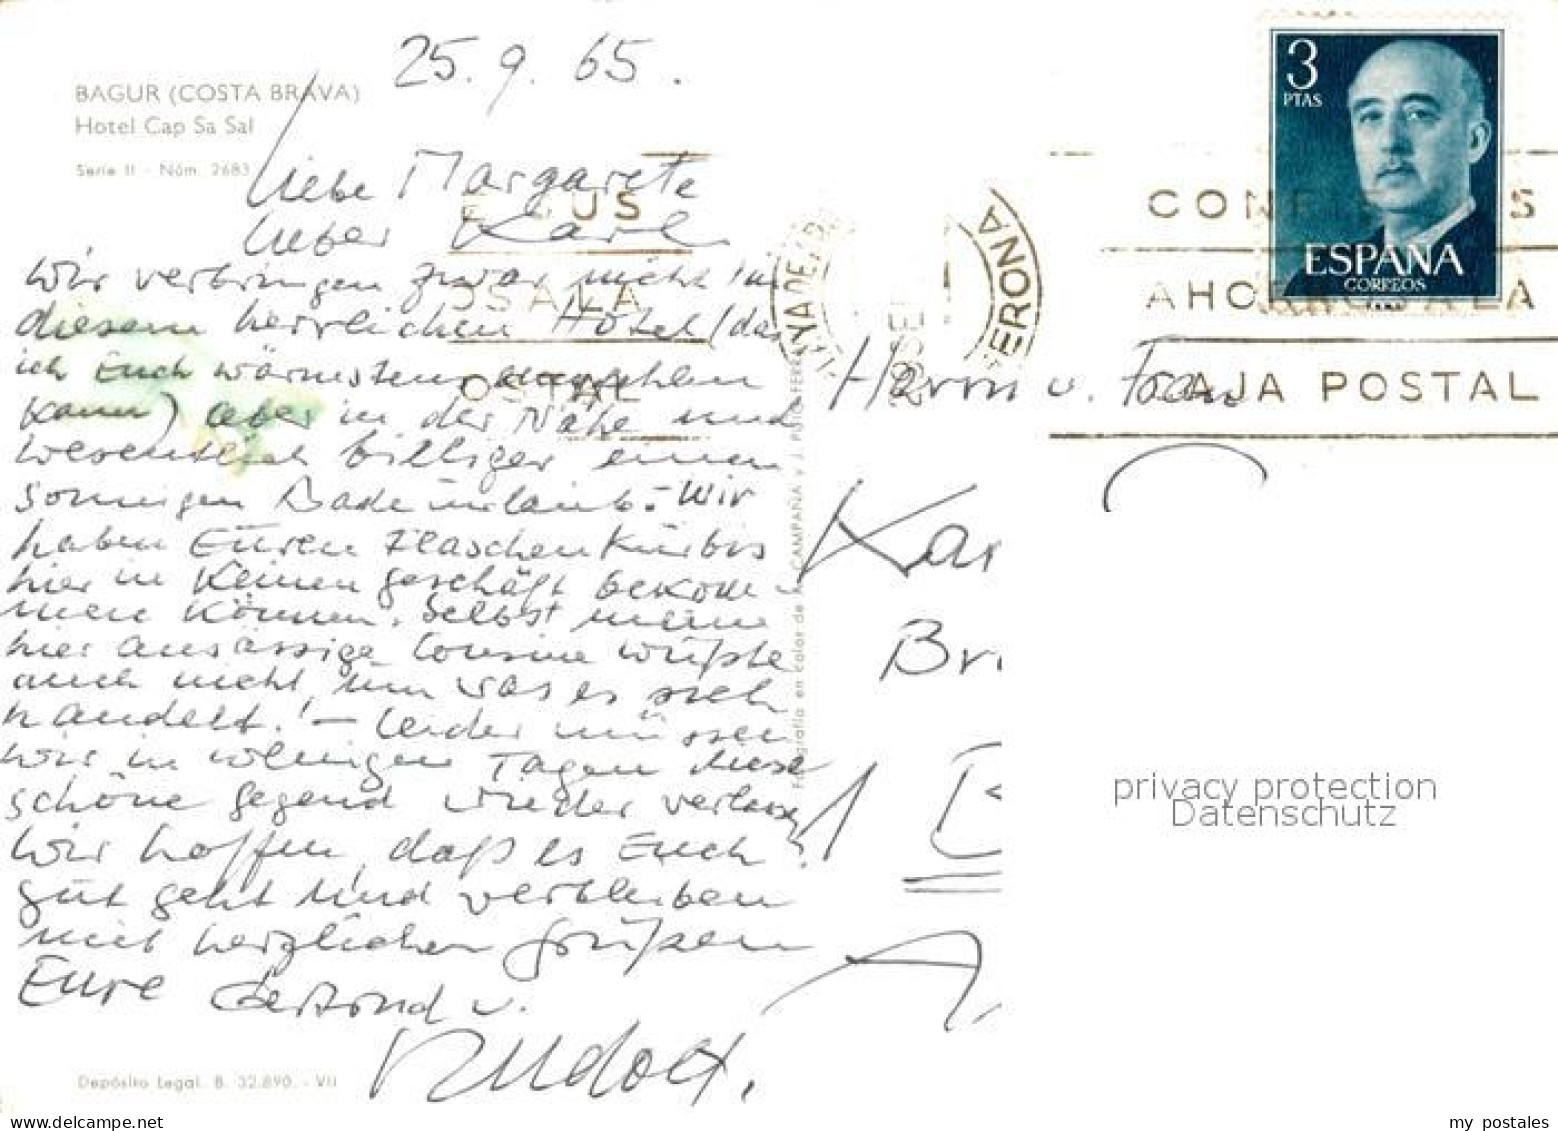 25. 9. 65.
BAGUR (COSTA BRAVA)
Hotel Cap Sa Sal
Serie II - Núm. 2683
Liebe Margarete
Lieber Karl
Wir verbringen zwar nicht in
diesem herrlichen Hotel (das
ich Euch wärmstens empfehlen
kann) aber in der Nähe und
wesentlich billiger einen
sonnigen Badeurlaub. - Wir
haben Euren Flaschenkürbis
hier in keinem Geschäft bekom-
men können. Selbst meine
hier ansässige Cousine wüßte
auch nicht, um was es sich
handelt! - Leider müssen
wir in wenigen Tagen diese
schöne Gegend wieder verlassen
Wir hoffen, daß es Euch
gut geht und verbleiben
mit herzlichen Grüßen
Eure Gertrud u.
Rudolf.
Depósito Legal. B. 32.890. - VII
Fotografía en color de A. CAMPAÑA y J. PUIG-FERRAN
3
PTAS
ESPAÑA
CORREOS
GERONA
SE
E SUS
OS A LA
OSTAL
CONF S
AHORROS A LA
CAJA POSTAL
Herrn u. Frau
Kar
Br
1 B
A
privacy protection
Datenschutz
my postales